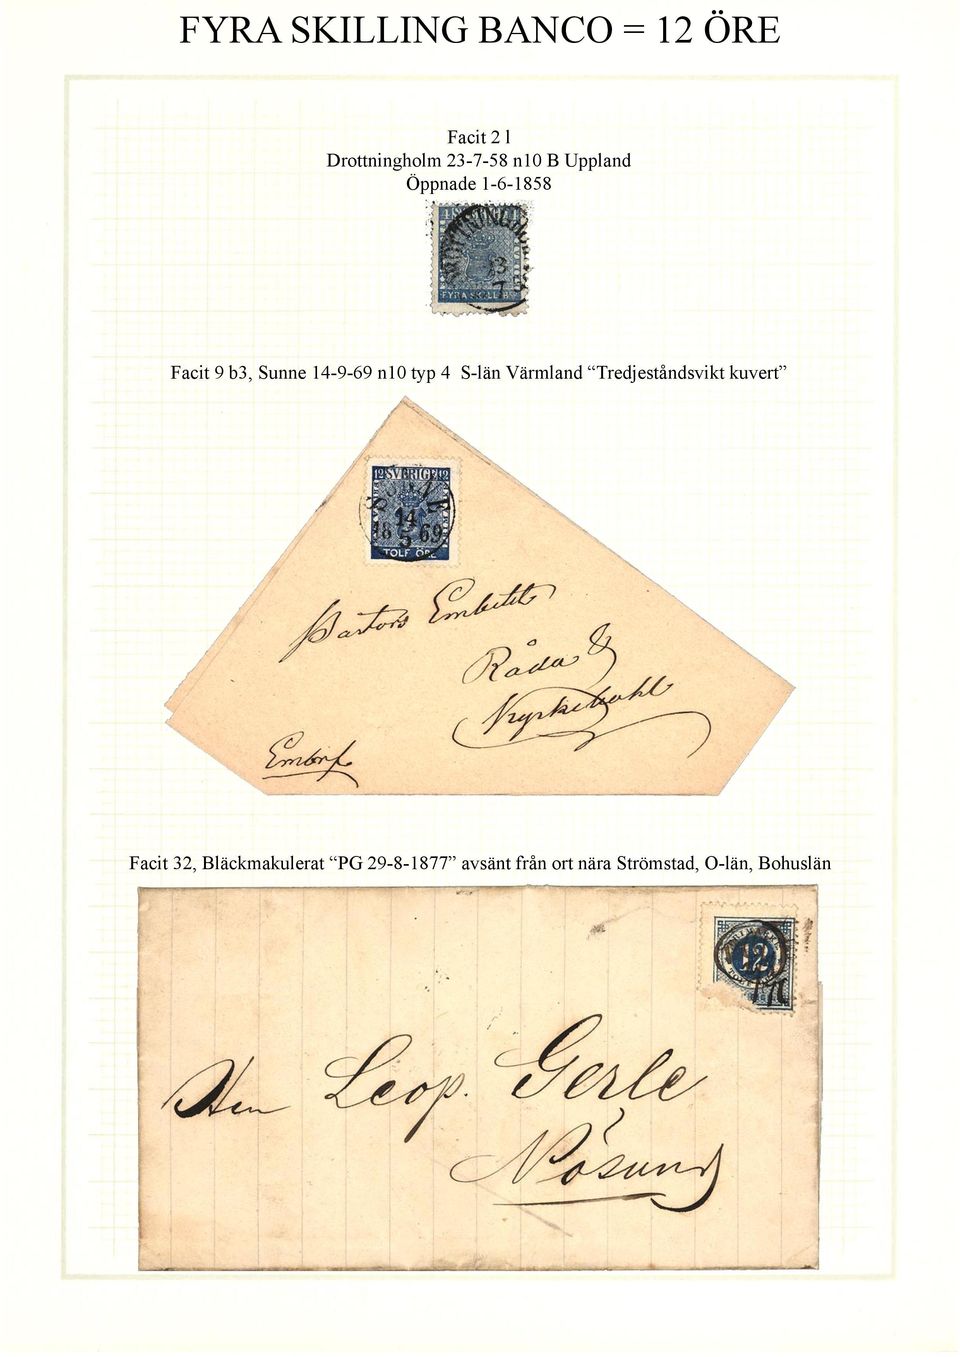 FYRA SKILLING BANCO = 12 ÖRE
Facit 2 l
Drottningholm 23-7-58 n10 B Uppland
Öppnade 1-6-1858
FYRA SKILL. B
Facit 9 b3, Sunne 14-9-69 n10 typ 4 S-län Värmland “Tredjeståndsvikt kuvert”
12 SVERIGE 12
SUNNE
14
18 69
5
TOLF ÖRE
Pastors Embetet
Råda &
Embrf
Facit 32, Bläckmakulerat “PG 29-8-1877” avsänt från ort nära Strömstad, O-län, Bohuslän
12
Herr Leop. Gerle
Nösund